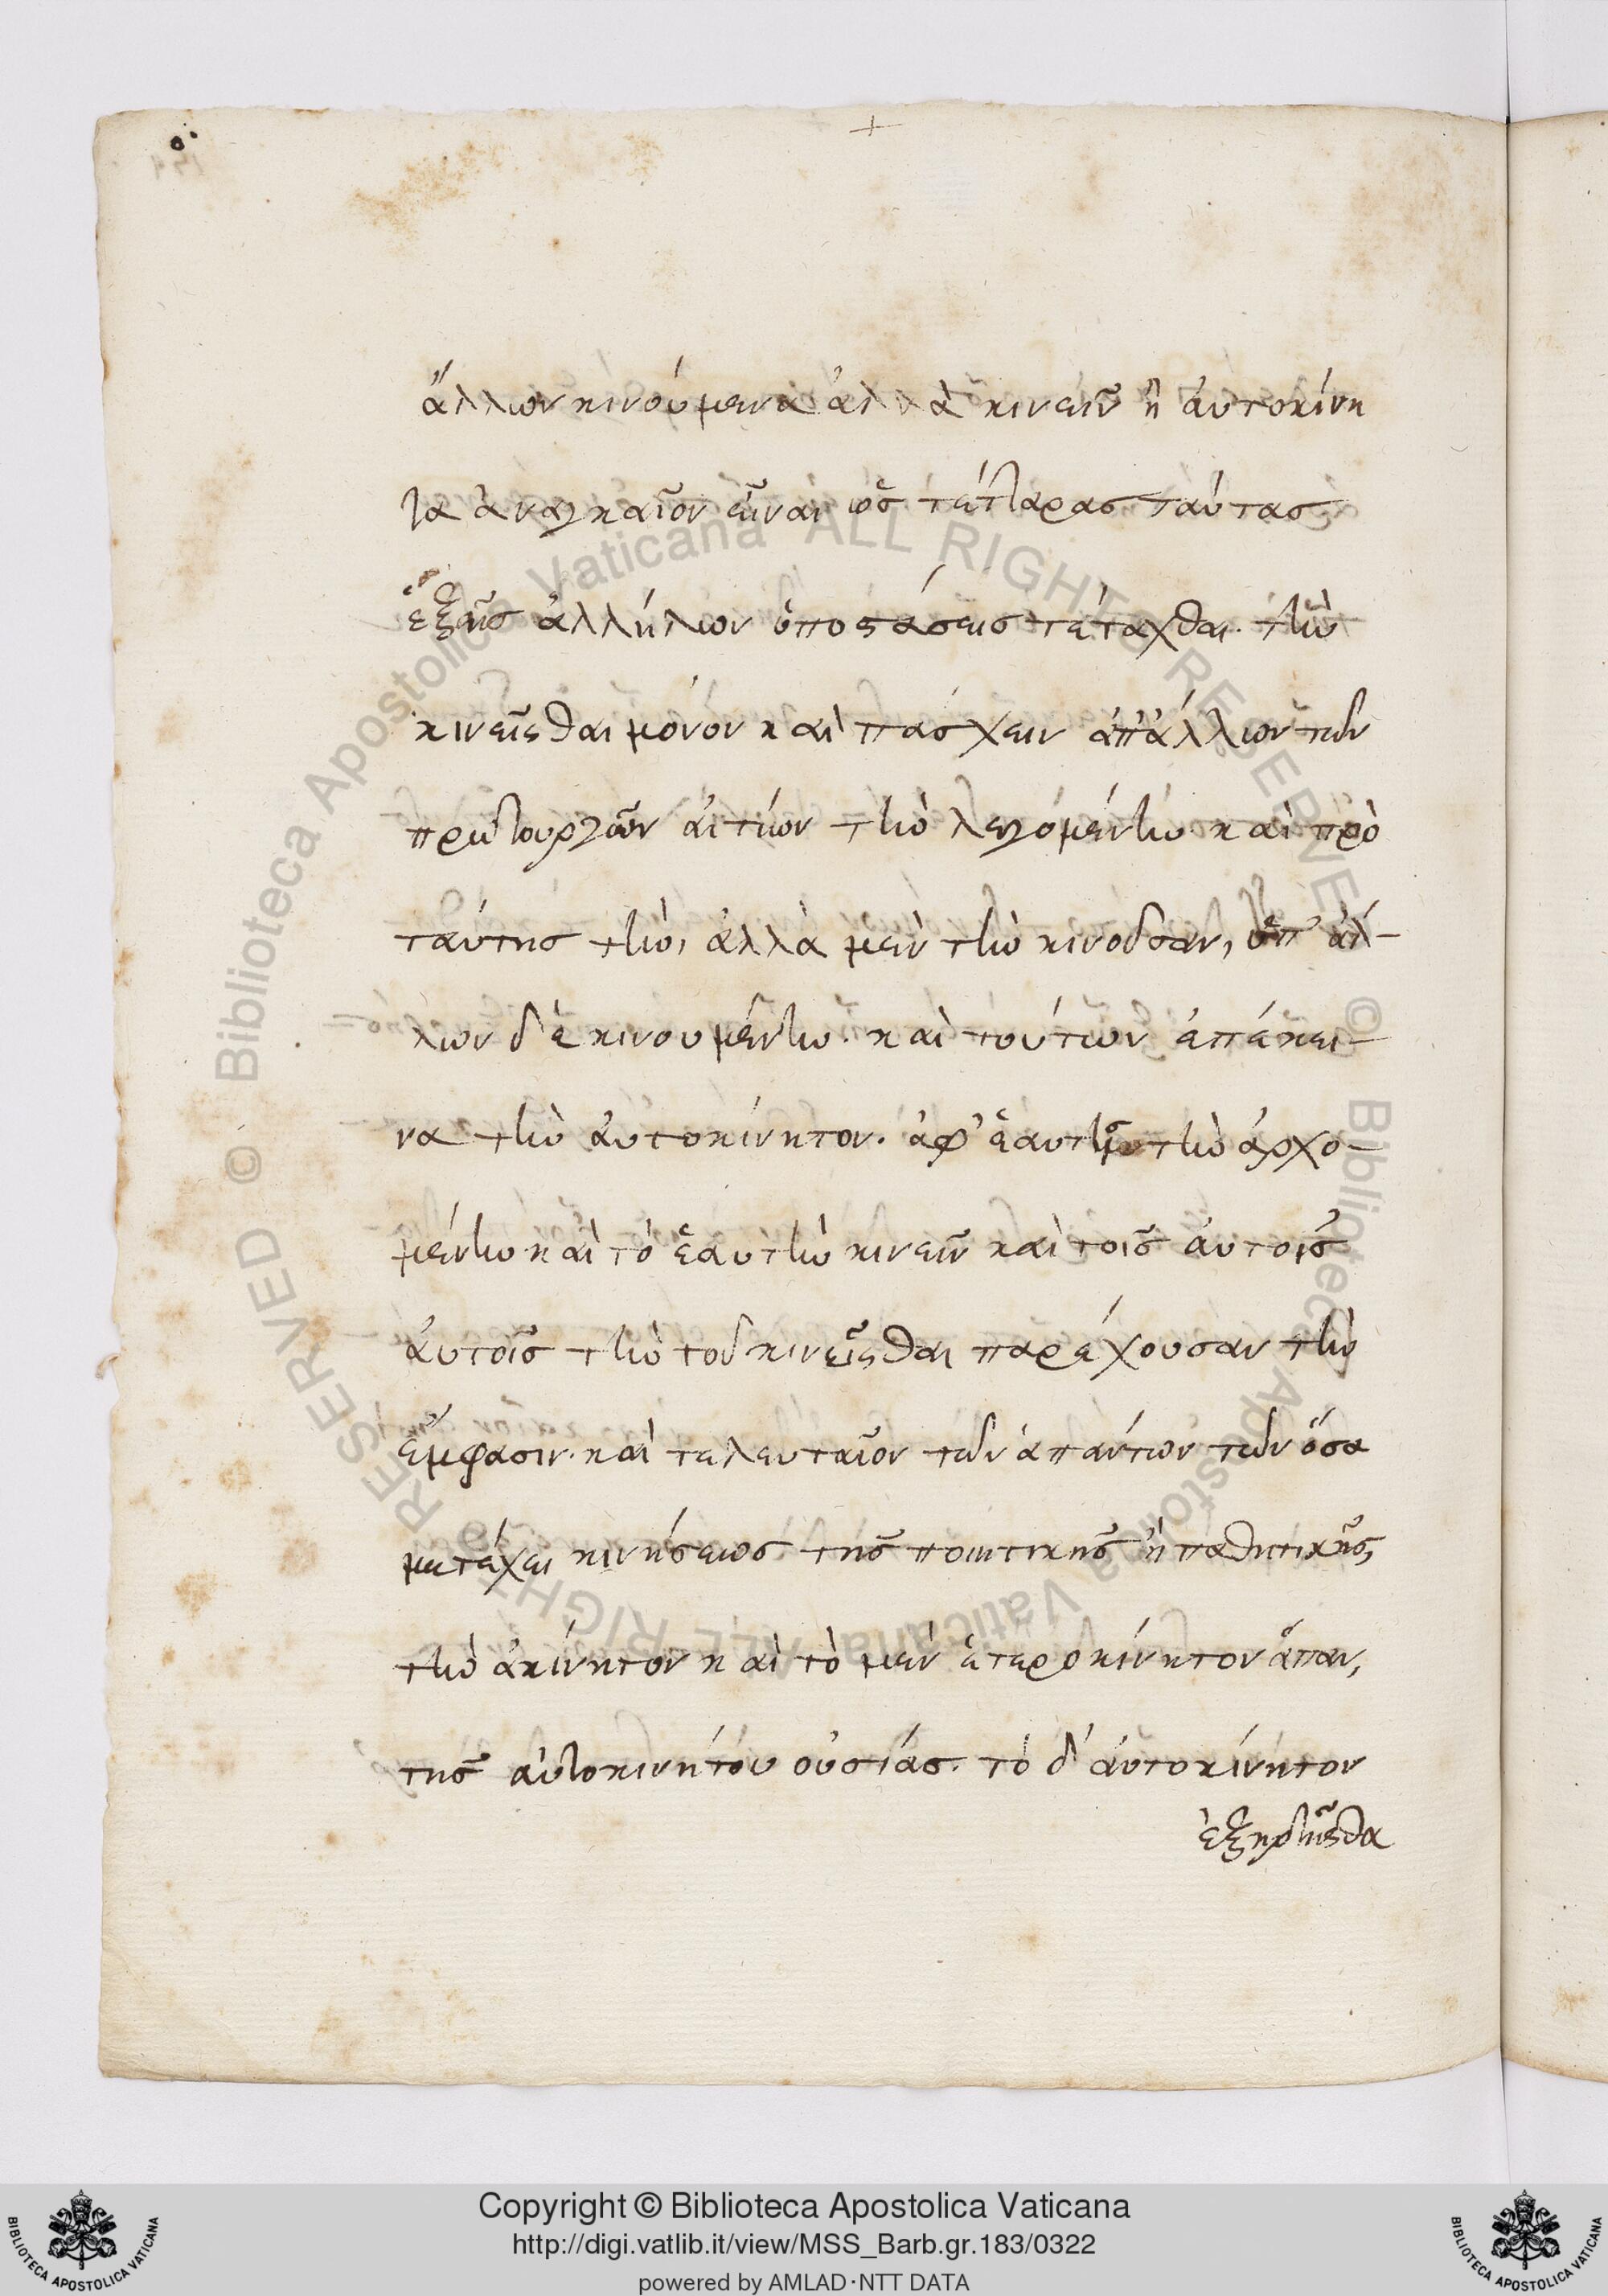 ἄλλων κινούμενα ἀλλὰ κινεῖν ἢ αὐτοκίνη
τα ἀναγκαῖον εἶναι ὡς τέτταρας ταύτας
ἑξῆς ἀλλήλων ὑποστάσεις τετάχθαι. τὴν
κινεῖσθαι μόνον καὶ πάσχειν ἀπ' ἄλλων τῶν
πρωτουργῶν αἰτίων τὴν λεγομένην. καὶ πρὸ
ταύτης τὴν, ἀλλὰ μὲν τὴν κινοῦσαν, ὑπ' ἀλ-
λων δὲ κινουμένην. καὶ τούτων ἐπέκει-
να τὴν αὐτοκίνητον. ἀφ' ἑαυτῆς τὴν ἀρχο-
μένην καὶ τὸ ἑαυτὴν κινεῖν καὶ τοῖς αὐτοῖς
αὐτοῖς τὴν τοῦ κινεῖσθαι παρέχουσαν τὴν
ἔμφασιν. καὶ τελευταῖον τῶν ἁπάντων τῶν ὅσα
μετέχει κινήσεως τῆς ποιητικῆς ἢ παθητικῆς,
τὴν ἀκίνητον καὶ τὸ μὲν ἑτεροκίνητον ἅπαν,
τῆς αὐτοκινήτου οὐσίας. τὸ δ' αὐτοκίνητον
ἐξηρτῆσθα
Copyright © Biblioteca Apostolica Vaticana
http://digi.vatlib.it/view/MSS_Barb.gr.183/0322
powered by AMLAD·NTT DATA
BIBLIOTECA APOSTOLICA VATICANA
BIBLIOTECA APOSTOLICA VATICANA
© Biblioteca Apostolica Vaticana ALL RIGHTS RESERVED
© Biblioteca Apostolica Vaticana ALL RIGHTS RESERVED